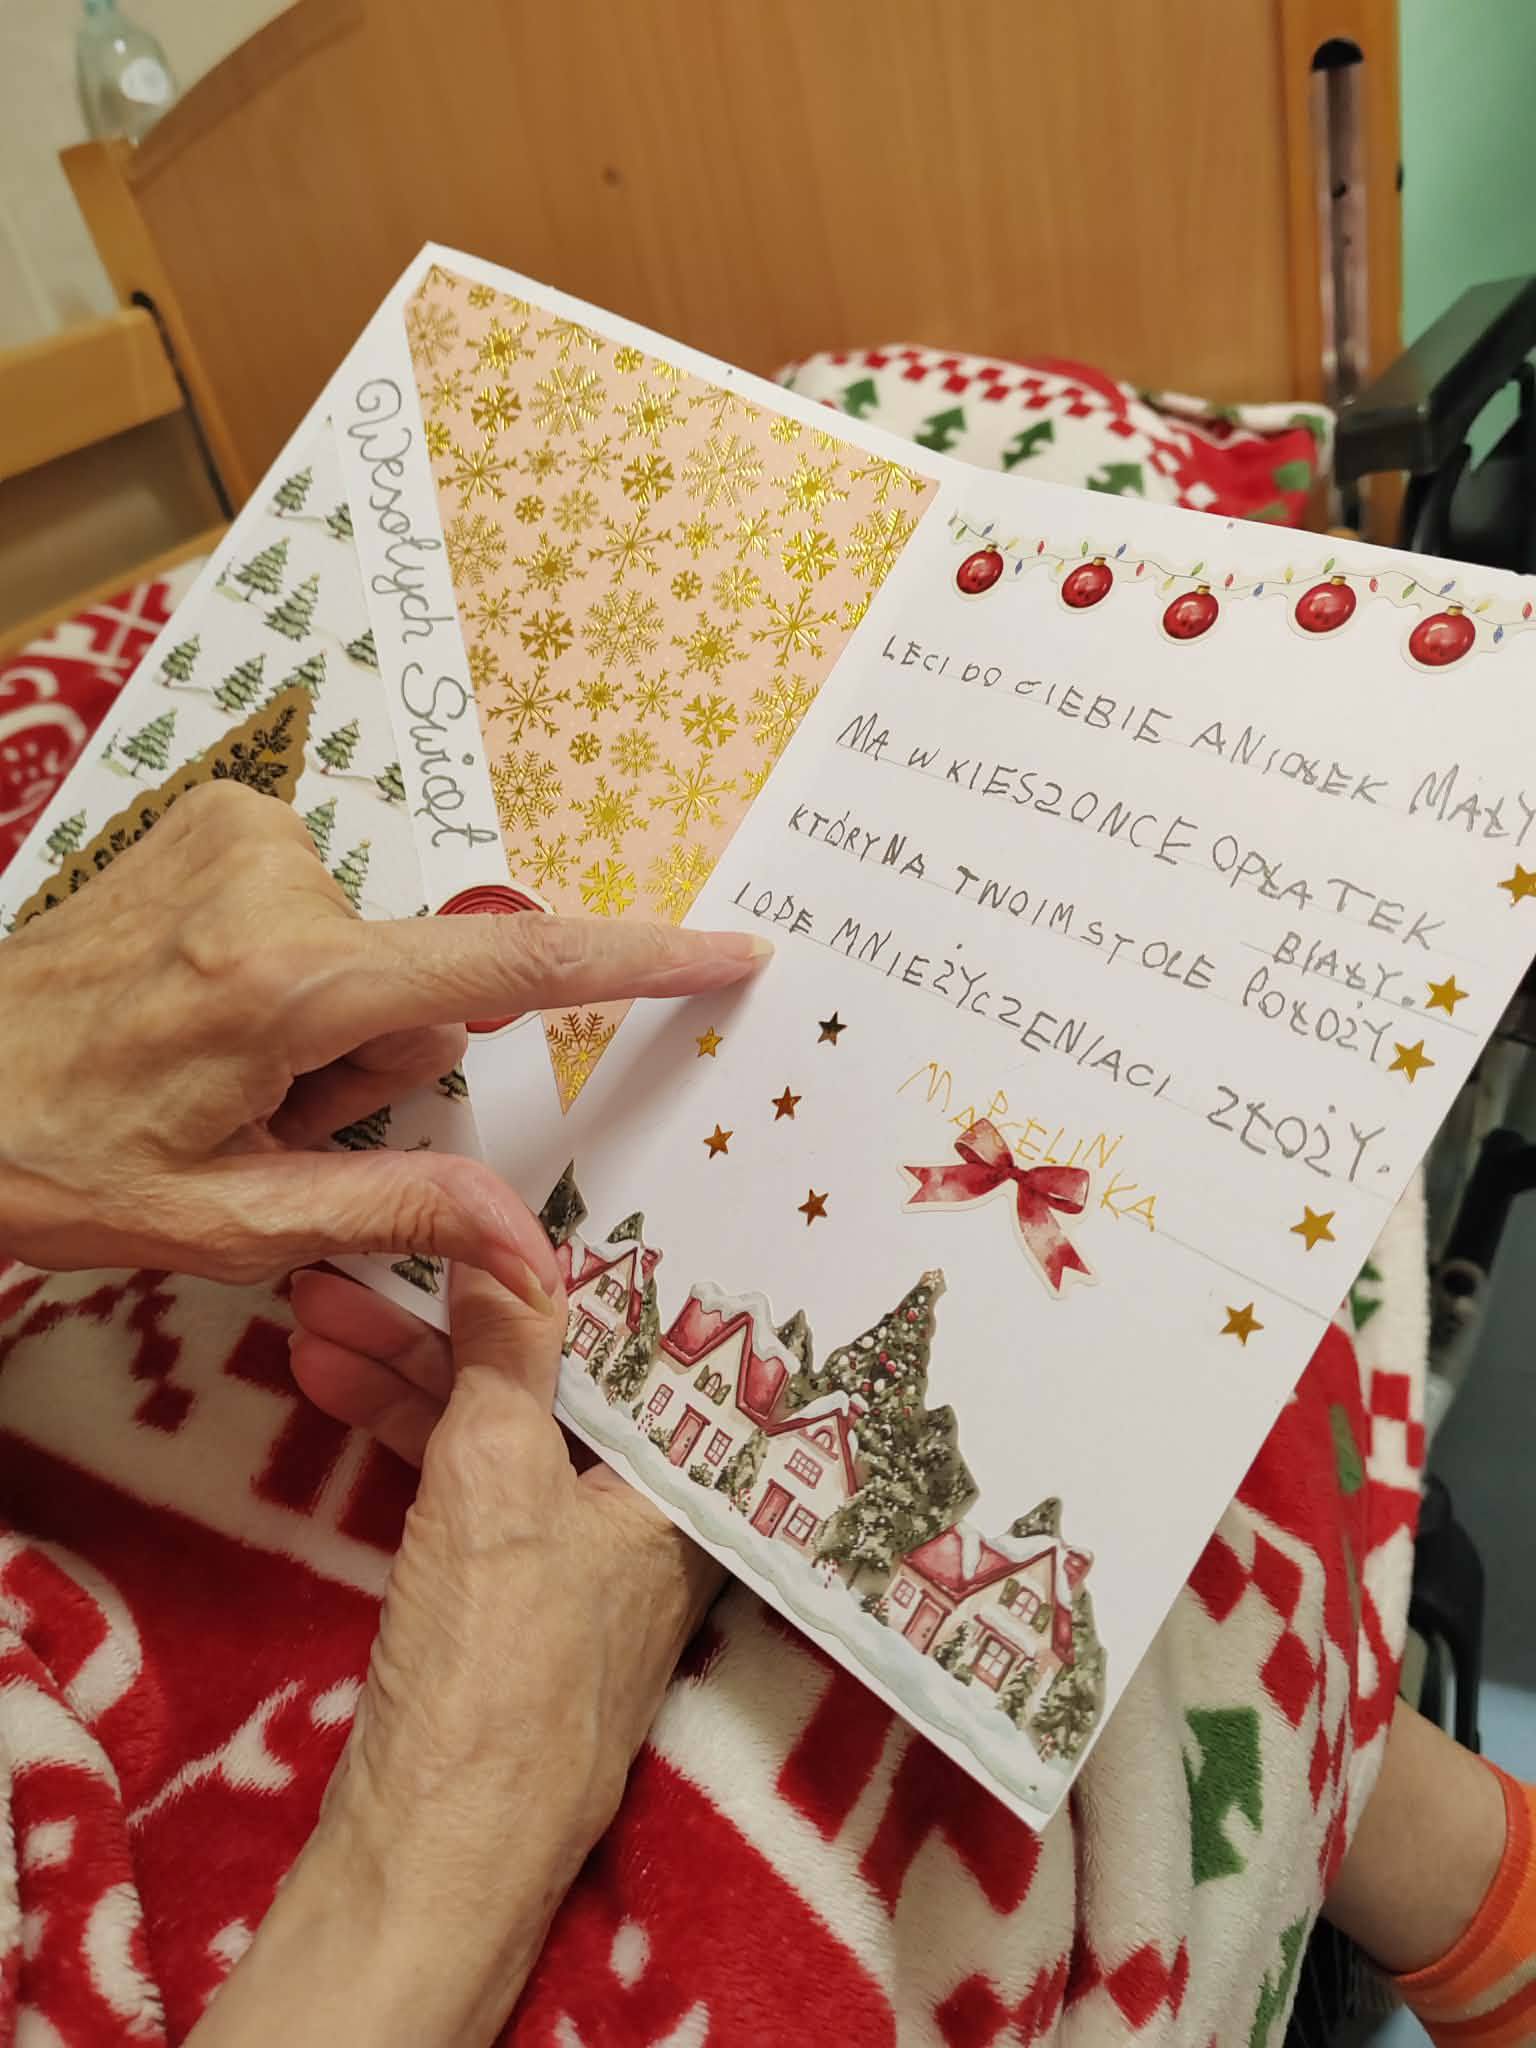 Wesołych Świąt
LECI DO CIEBIE ANIOŁEK MAŁY
MA W KIESZONCE OPŁATEK
BIAŁY.
KTÓRY NA TWOIM STOLE POŁOŻY
I ODE MNIE ŻYCZENIA CI ZŁOŻY.
MARCELINKA